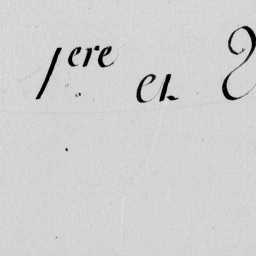 1ere et 2